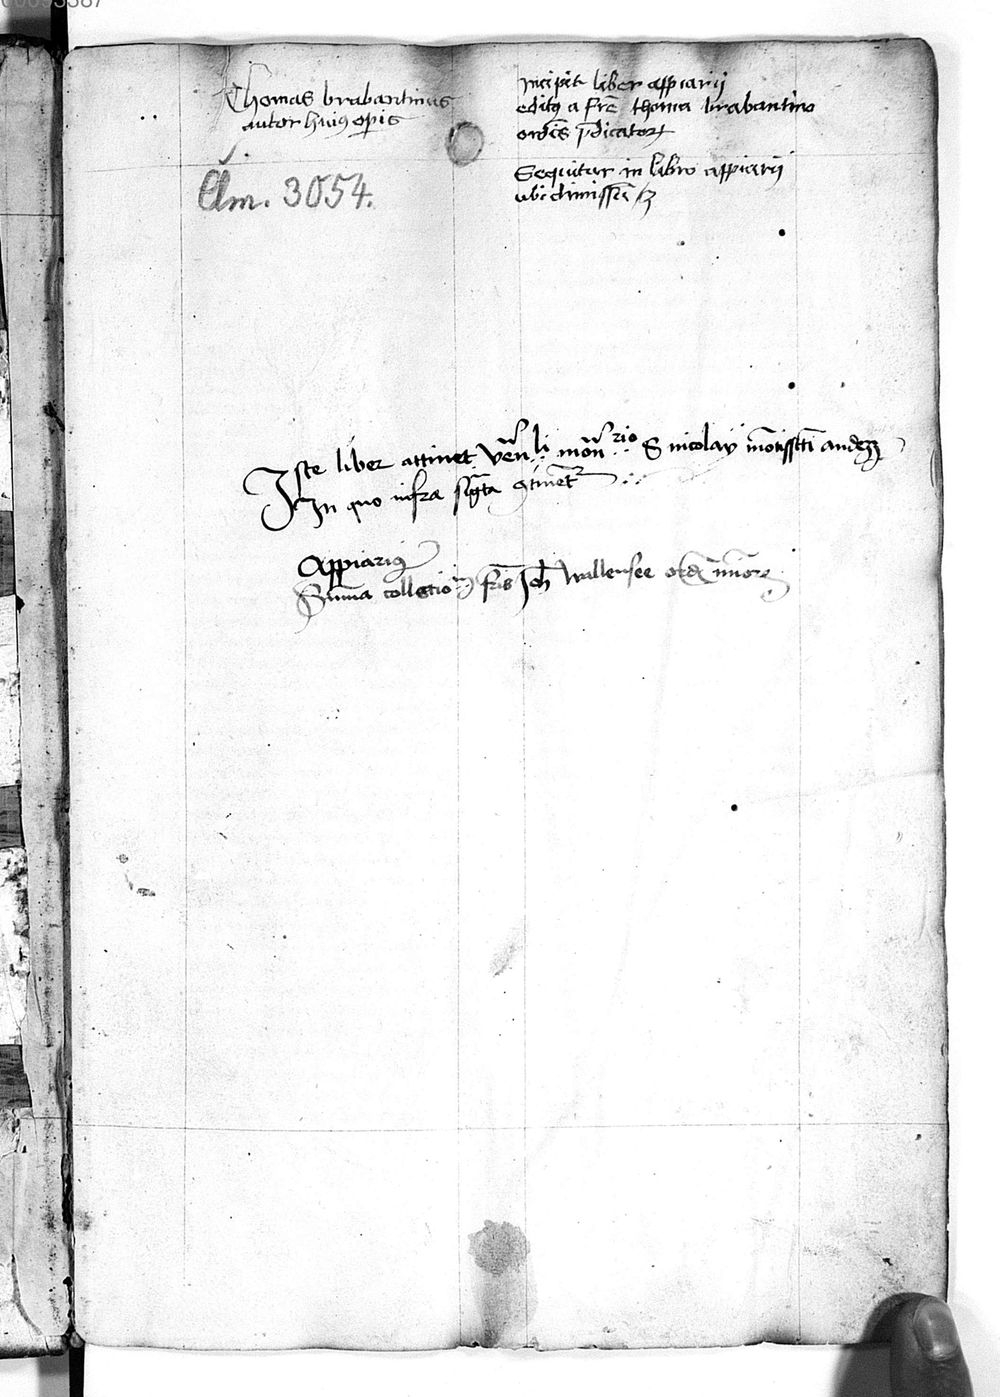 Thomas brabantinus
autor huiꝰ opis
Clm. 3054.
Incipit liber appiarij
editꝰ a fr̄e thoma brabantino
ordīs p̄dicatorꝝ
Sequitur in libro appiarij
ubi dimissū
Iste liber attinet ven̄li mōn̄rio S nicolay mōtissc̄ti andeꝝ
In quo infra sc̄pta ꝯtinet᷑
Appiariꝰ
Suma collectionū fr̄is Joh̄ wallensee ord̄ minorꝝ